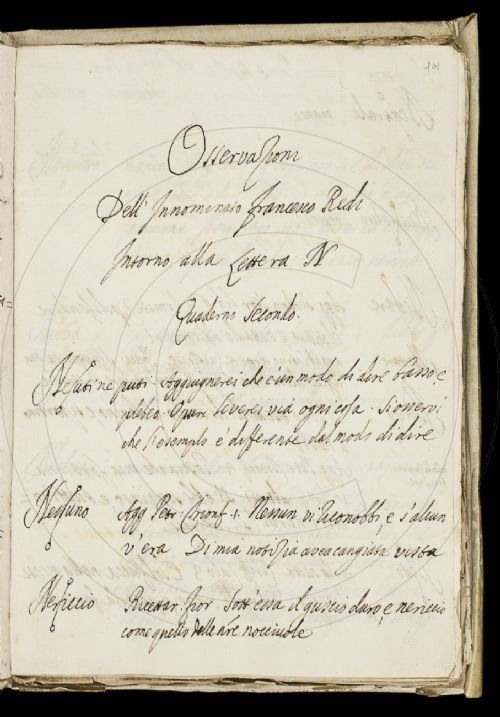 Osservazioni
Dell' Innominato Francesco Redi
Intorno alla Lettera N
Quaderno Secondo.
puti. Aggiugnerei che è un modo di dire basso, e
plebeo. Opure leverei via ogni cosa. Si osservi
che l'esemplo è differente dal modo di dire
Nessuno Agg Petr. Trionf. 1. Nessun vi riconobbi, e s'alcun
v'era Di mia notizia avea cangiata vista
Nericcio Ricettar. Fior Sott' essa il guscio duro, e nericcio
come quello delle nre nocciuole